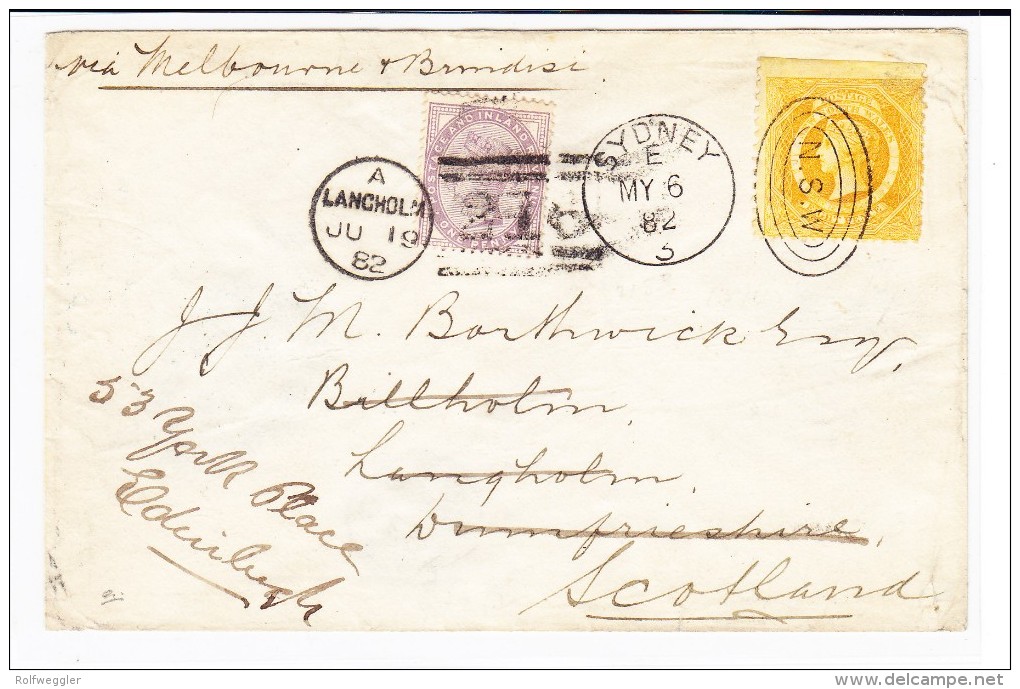 via Melbourne & Brindisi
POSTAGE AND INLAND REVENUE
ONE PENNY
A
LANGHOLM
JU 19
82
216
SYDNEY
E
MY 6
82
3
POSTAGE
N.S.W
J. J. M. Borthwick Esq,
Billholm,
Langholm,
Dumfrieshire,
Scotland
53 York Place
Edinburgh
Rolfweggler
delcampe.net